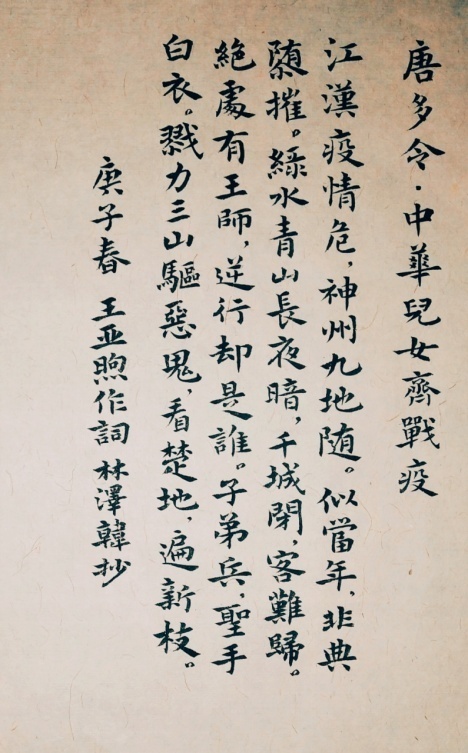 唐多令·中華兒女齊戰疫
江漢疫情危，神州九地随。似當年，非典
摧。綠水青山長夜暗，千城閉，客難歸。
絕處有王師，逆行却是誰。子弟兵，聖手
白衣。戮力三山驅惡鬼，看楚地，遍新枝。
庚子春 王亚煦作詞 林澤韓抄